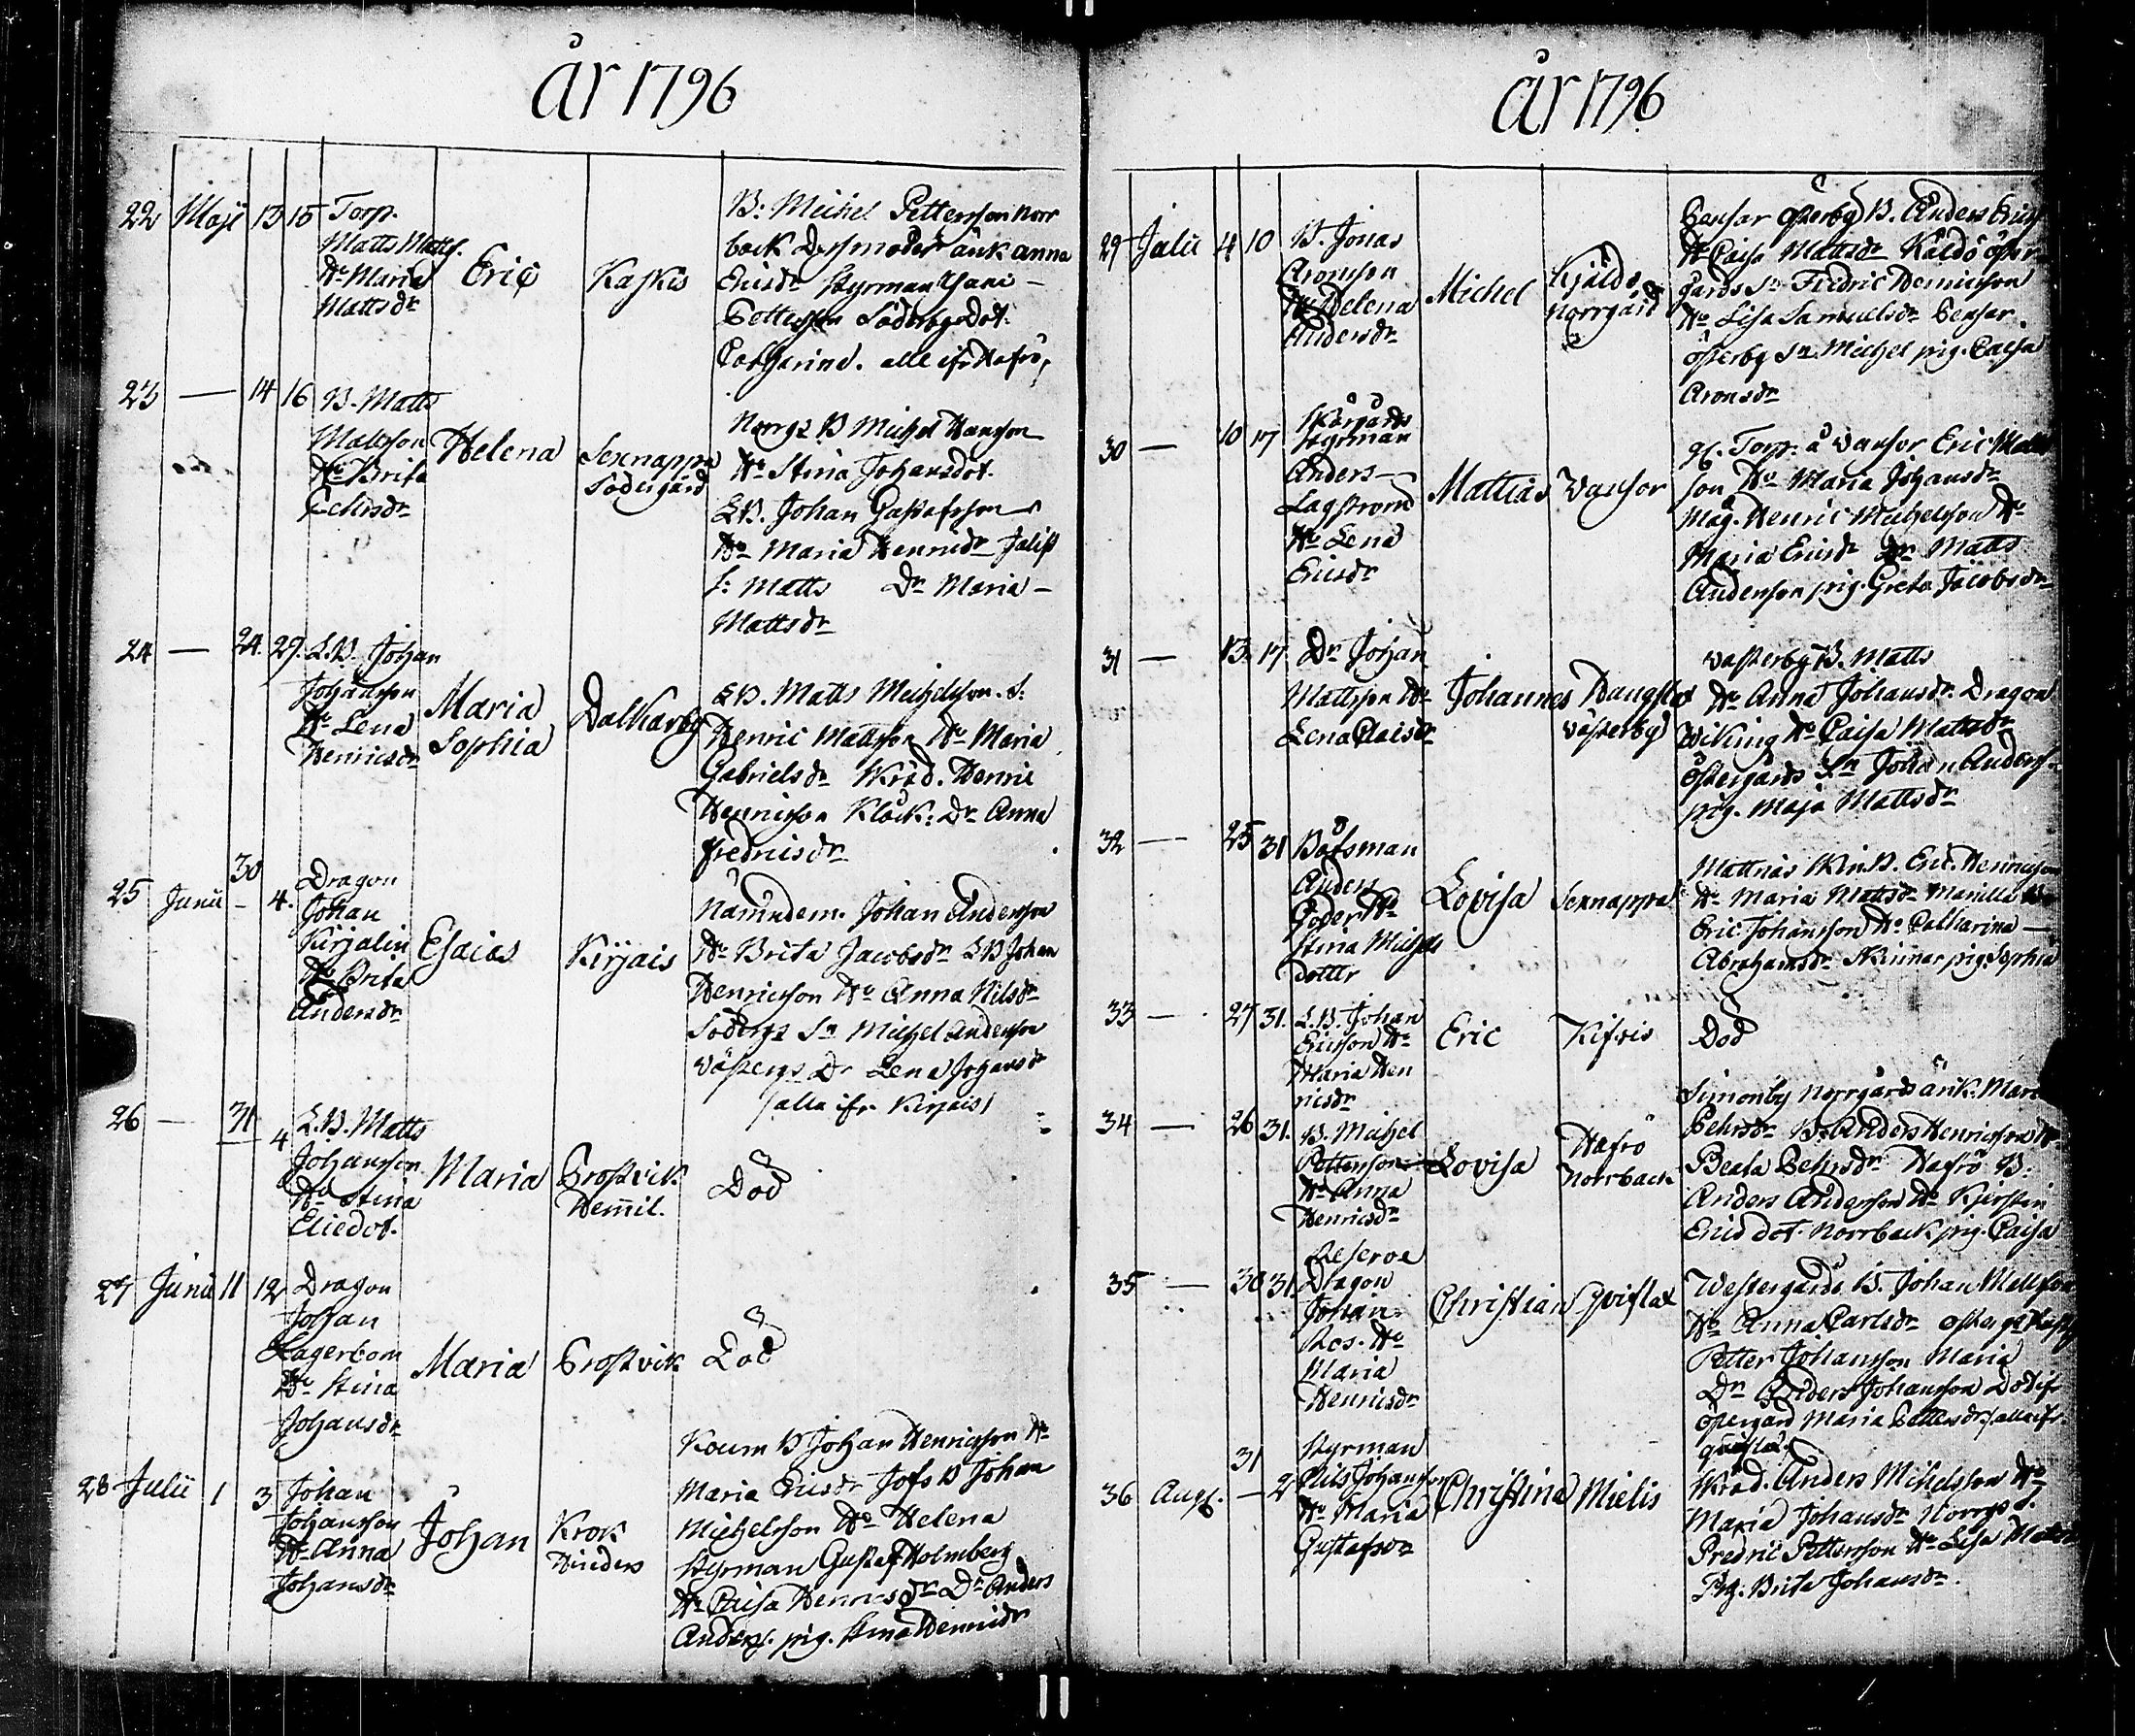 år 1796
22 Maji 13 15 Torp.
Matts Matts.
Hu Maria
Mattsdr
Eric
Kaskis
B: Michel Pettersson Norr
back Dess moder änk Anna
Ericsdr Styrman Esaie
Pettersson Söderbg Dot.
Catharina. alle ifr. Nafrö,
23 — 14 16 B. Matts
Mattsson
Hu Brita
Pehrsdr
Helena
Sexnappa
Södergård
Norrgs B Michel Hansson
Hu Stina Johansdot.
L.B. Johan Gustafsson
Hu Maria Henricsdr Jalist
s: Matts Dr Maria —
Mattsdr
24 — 24. 29. L.B. Johan
Johansson
Hu Lena
Henricsdr
Maria
Sophia
Dalkarby
L.B. Matts Michelsson. S:
Henric Mattsson Hu Maria
Gabrielsdr Skräd. Henric
Henricsson Klock: Dr Anna
Fredricsdr
25 Junii 30 — 4. Dragon
Johan
Kirjalin
Hu Brita
Andersdr
Esaias
Kirjais
Nämndem. Johan Andersson
Hu Brita Jacobsdr L.B Johan
Henricsson Hu Anna Nilsdr
Södergs Sn Michel Andersson
Västergs Dr Lena Johansdr
/alla ifr Kirjais/
26 — 31 4 L.B. Matts
Johansson
Hu Stina
Eliedot.
Maria
Prostvik
Hemil.
Död
27 Junii 11 12 Dragon
Johan
Lagerbom
Hu Stina
Johansdr
Maria
Prostvik
Död
28 Julii 1 3 Johan
Johansson
Hu Anna
Johansdr
Johan
Krok
Hinders
Koum B Johan Henricsson Hu
Maria Ericsdr Jofs B Johan
Michelsson Hu Helena
Styrman Gustaf Holmberg
Hu Caisa Henricsdr Dr Anders
Anderss. pig. Stina Henricsdr
år 1796
29 Julii 4 10 B. Jonas
Aronsson
Hu Helena
Andersdr
Michel
Kjäldö
Norrgård
Pensar Österby B. Anders Erics
Hu Caisa Mattsdr Käldö Öster
gards Sn Fredric Henricsson
Hu Lisa Samuelsdr Pensar
Österby Sn Michel pig. Caisa
Aronsdr
30 — 10 17 Skärgårds
styrman
Anders
Lagström
Hu Lena
Ericsdr
Mattias
Vansor
gl. Torp. å Vansor Eric Matts
son Hu Maria Johansdr
Måg. Henric Michelsson Hu
Maria Ericsdr Dr Matts
Andersson pig. Greta Jacobsdr
31 — 13. 17. Dr Johan
Mattsson Hu
Lena Claesdr
Johannes
Haugslax
Västerby
Västerby B. Matts
Hu Anna Johansdr. Dragon
Wiking Hu Caisa Mattsdr
Östergårds Sn Johan Anders.
pig. Maja Mattsdr
32 — 25 31 Båtsman
Anders
Geder Hu
Stina Michels
dotter
Lovisa
Sexnappa
Mattnäs Skin. B. Eric Henricsson
Hu Maria Mattsdr Manilla
Eric Johansson Hu Catharina —
Abrahamsdr Skinnar pig. Sophia
33 — 27 31. L.B. Johan
Ericsson Hu
Maria Hen
ricsdr
Eric
Kifvis
Död
34 — 26 31. B. Michel
Pettersson
Hu Anna
Henricsdr
Lovisa
Nafrö
Norrback
Simonby Norrgårds änk. Maria
Pehrsdr B. Anders Henricsson Hu
Beata Pehrsdr Nafrö B.
Anders Andersson Hu Kjerstin
Ericsdot. Norrback pig. Caisa
35 — 30 31. Reserve
Dragon
Johan
Ros. Hu
Maria
Henricsdr
Christian
Qvislax
Westergårds B. Johan Mattsson
Hu Anna Carlsdr Östergs
Petter Johansson Maria
Dr Anders Johansson
Östergård Maria Pettersdr /alla ifr
qvislax/
36 Aug. 31 — 2 Styrman
Nils Johansson
Hu Maria
Gustafsdr
Christina
Mielis
Skräd. Anders Michelsson Hu
Maria Johansdr Norrgs S.
Fredric Pettersson Hu Lisa Matts
Pig: Brita Johansdr.